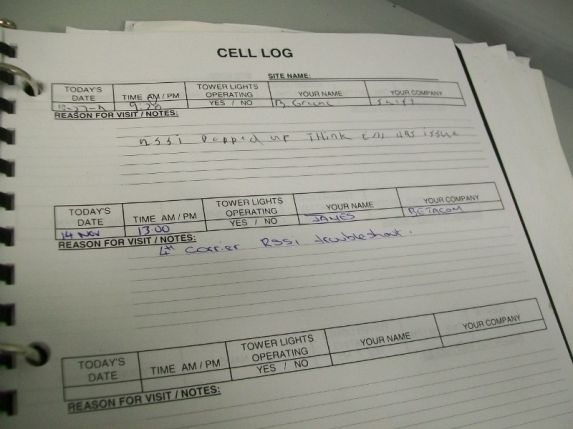 CELL LOG
SITE NAME:
TODAY'S DATE TIME AM / PM TOWER LIGHTS OPERATING YOUR NAME YOUR COMPANY
9:28 YES / NO
REASON FOR VISIT / NOTES:
rssi Popped up Think
TODAY'S DATE TIME AM / PM TOWER LIGHTS OPERATING YOUR NAME YOUR COMPANY
14 NOV 13:00 YES / NO JAMES BETACOM
REASON FOR VISIT / NOTES:
4th Carrier RSSI troubleshoot.
TODAY'S DATE TIME AM / PM TOWER LIGHTS OPERATING YOUR NAME YOUR COMPANY
YES / NO
REASON FOR VISIT / NOTES: